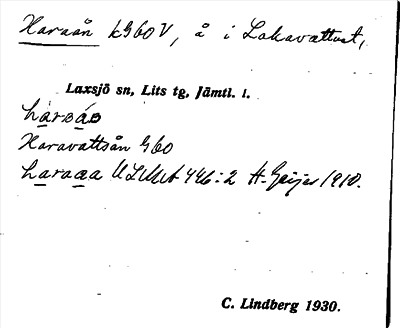 Haraån k G60 V, å i Lakavattnet,
Laxsjö sn, Lits tg, Jämtl. l.
haroáo
Haravattsån G60
haraaa ULMA 446:2 H. Geijer 1910.
C. Lindberg 1930.